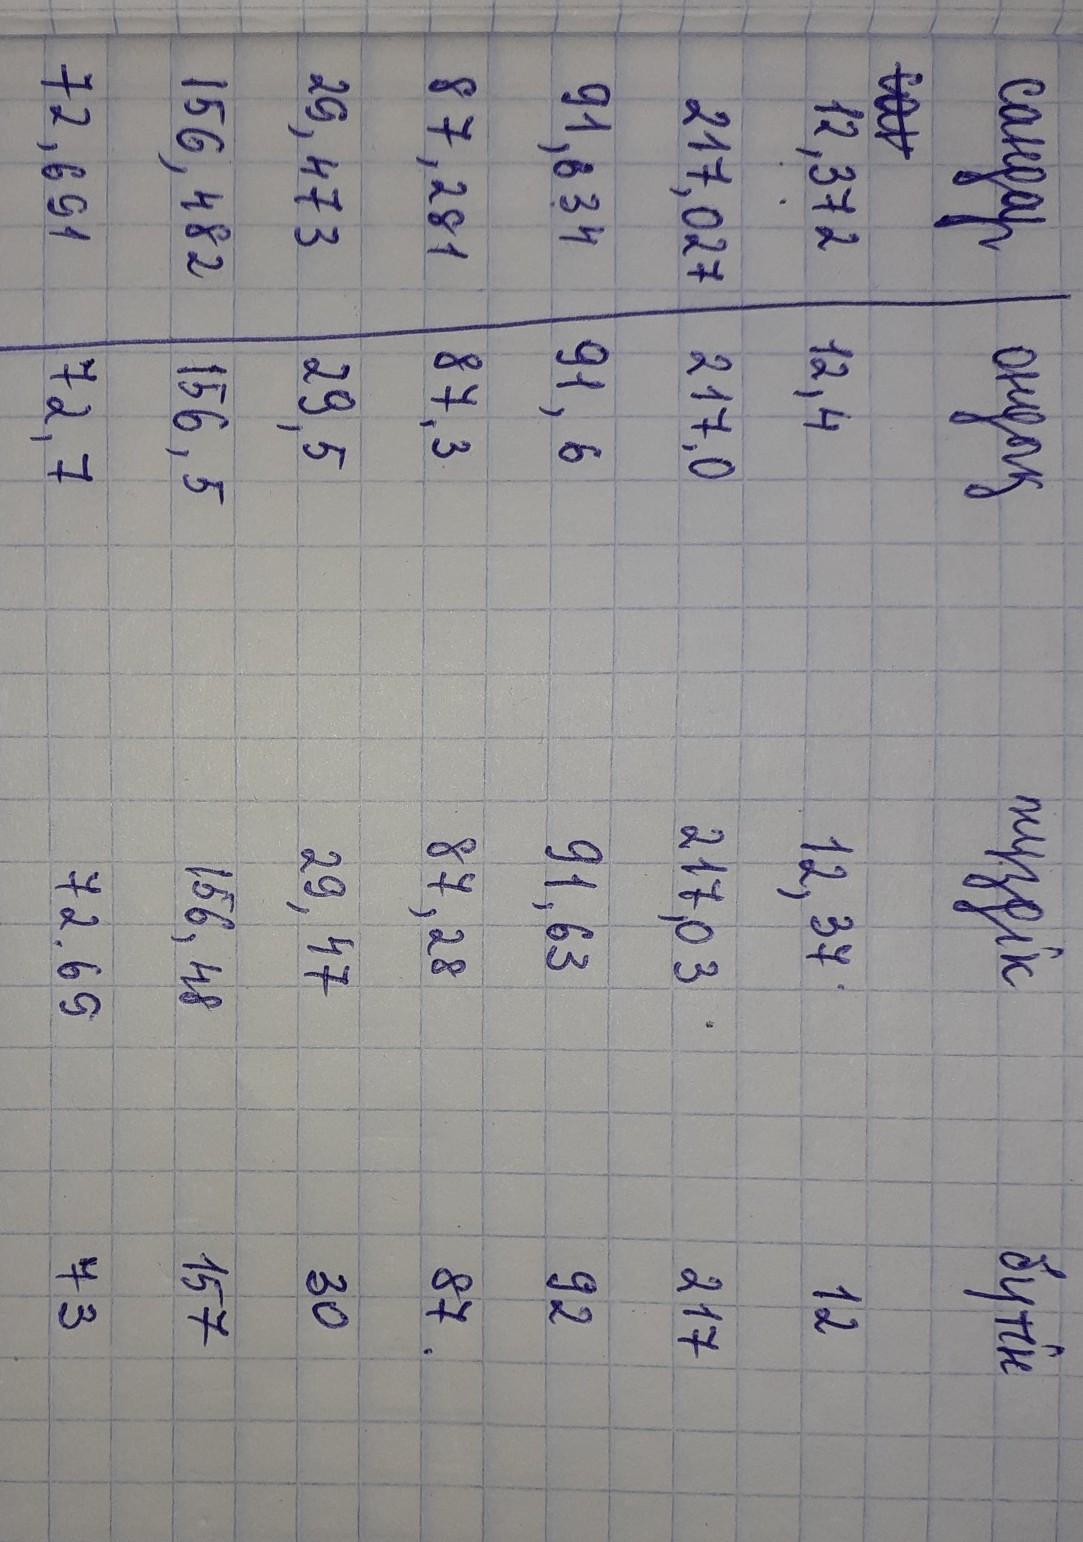 сандар ондық жүздік бүтін
12,372 12,4 12,37. 12
217,027 217,0 217,03. 217
91,634 91,6 91,63 92
87,281 87,3 87,28 87.
29,473 29,5 29,47 30
156,482 156,5 156,48 157
72,691 72,7 72.69 73